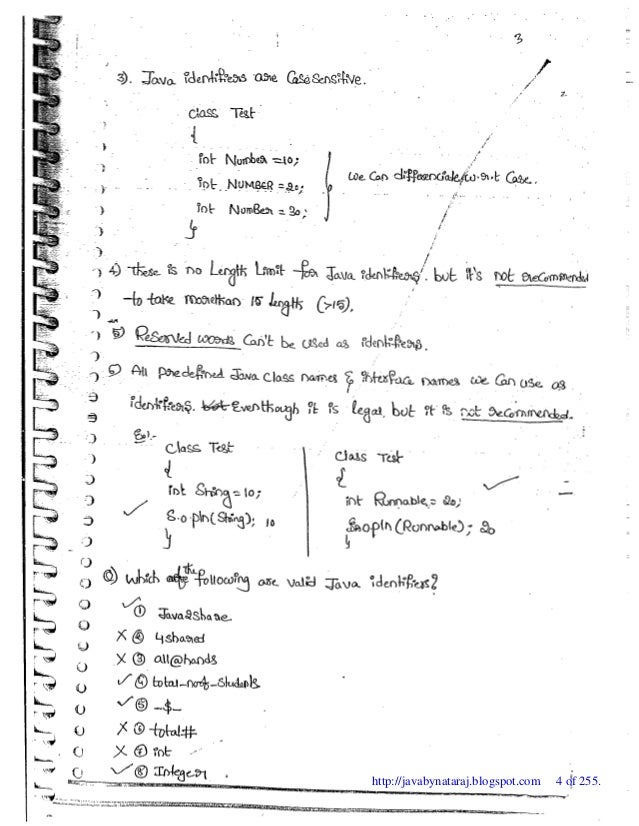 3
3). Java identifiers are Case Sensitive.
class Test
{
int Number = 10;
int NUMBER = 20;
int NumBer = 30;
}
we can differenciate w.r.t Case.
4) there is no Length Limit for Java identifiers. but it's not recommended
to take morethan 15 length (>15).
5) Reserved words Can't be used as identifiers.
6) All predefined Java class names & interface names we can use as
identifiers. but Eventhough it is legal, but it is not recommended.
Ex:-
class Test
{
int String = 10;
✓ S.o.pln(String); 10
}
class Test
{
int Runnable = 20; ✓
S.opln(Runnable); 20
}
Q) Which of the following are valid Java identifiers?
✓ ① Java2share
X ② 4shared
X ③ all@hands
✓ ④ total_no.of_students
✓ ⑤ _$_
X ⑥ total#
X ⑦ int
✓ ⑧ Integer.
http://javabynataraj.blogspot.com 4 of 255.